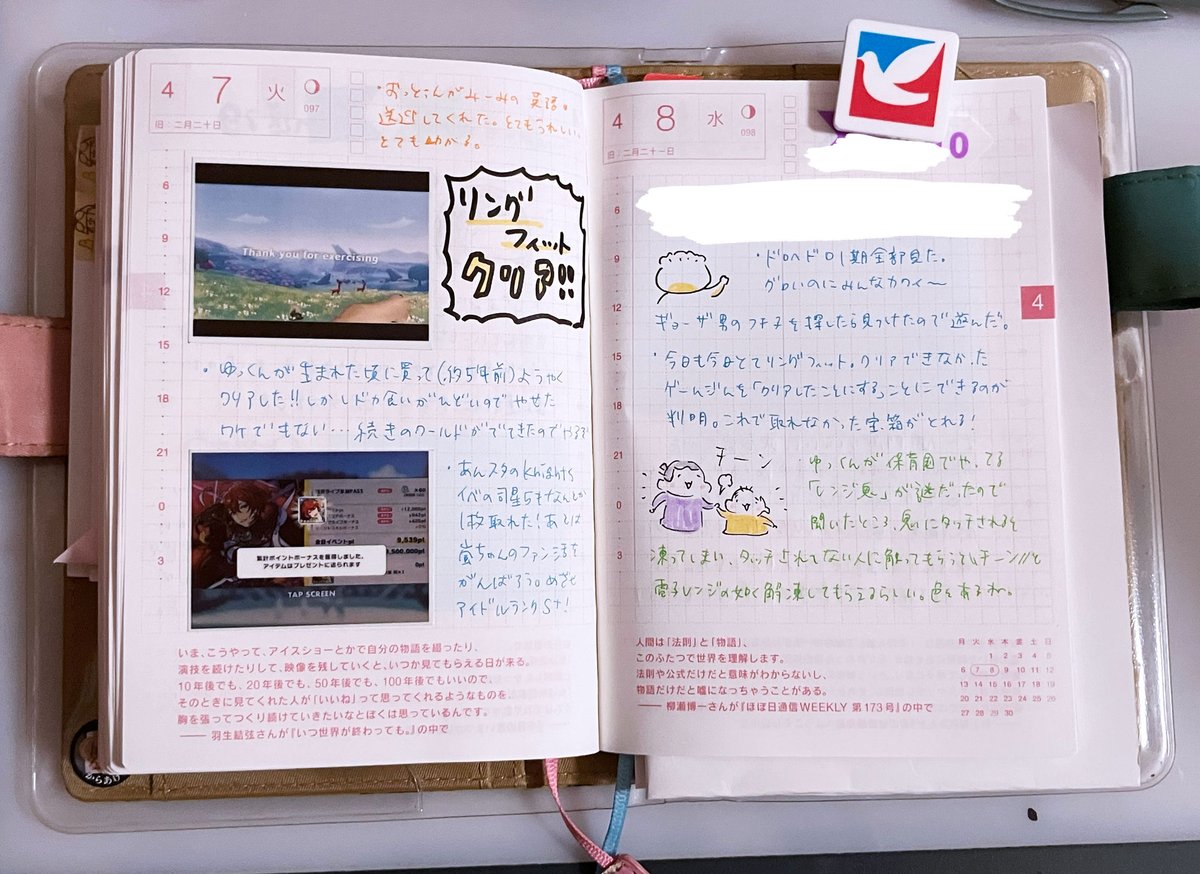 4 7 火
097
旧:二月二十日
・おっとさんがみーみの英語。
送迎してくれた。とてもうれしい。
とても助かる。
6
9
12
15
18
21
0
3
Thank you for exercising
リング
フィット
クリア!!
・ゆっくんが生まれた頃に買って(約5年前)ようやく
クリアした!!しかしドカ食いがひどいのでやせた
ワケでもない…続きのワールドがでてきたのでやるぞ
×60
9,539pt
集計ポイントボーナスを獲得しました。
アイテムはプレゼントに送られます
TAP SCREEN
・あんスタのKnights
イベの司星5をなんとか
1枚取れた!あとは
嵐ちゃんのファン活を
がんばろう。めざせ
アイドルランクS+!
いま、こうやって、アイスショーとかで自分の物語を綴ったり、
演技を続けたりして、映像を残していくと、いつか見てもらえる日が来る。
10年後でも、20年後でも、50年後でも、100年後でもいいので、
そのときに見てくれた人が「いいね」って思ってくれるようなものを、
胸を張ってつくり続けていきたいなとぼくは思っているんです。
── 羽生結弦さんが『いつ世界が終わっても。』の中で
からあげ
4 8 水
098
旧:二月二十一日
0
6
9
12
15
18
21
0
3
4
・ドロヘドロ1期全部見た。
グロいのにみんなカワイ〜
ギョーザ男のフチ子を探したら見つけたので遊んだ。
・今日も今日とてリングフィット。クリアできなかった
ゲームジムを「クリアしたことにする」ことにできるのが
判明。これで取れなかった宝箱がとれる!
チーン
・ゆっくんが保育園でやってる
「レンジ鬼」が謎だったので
聞いたところ、鬼にタッチされると
凍ってしまい、タッチされてない人に触ってもらうと「チーン」と
電子レンジの如く解凍してもらえるらしい。色々あるね。
人間は「法則」と「物語」、
このふたつで世界を理解します。
法則や公式だけだと意味がわからないし、
物語だけだと嘘になっちゃうことがある。
── 柳瀬博一さんが『ほぼ日通信WEEKLY 第173号』の中で
月 火 水 木 金 土 日
1 2 3 4 5
6 7 8 9 10 11 12
13 14 15 16 17 18 19
20 21 22 23 24 25 26
27 28 29 30